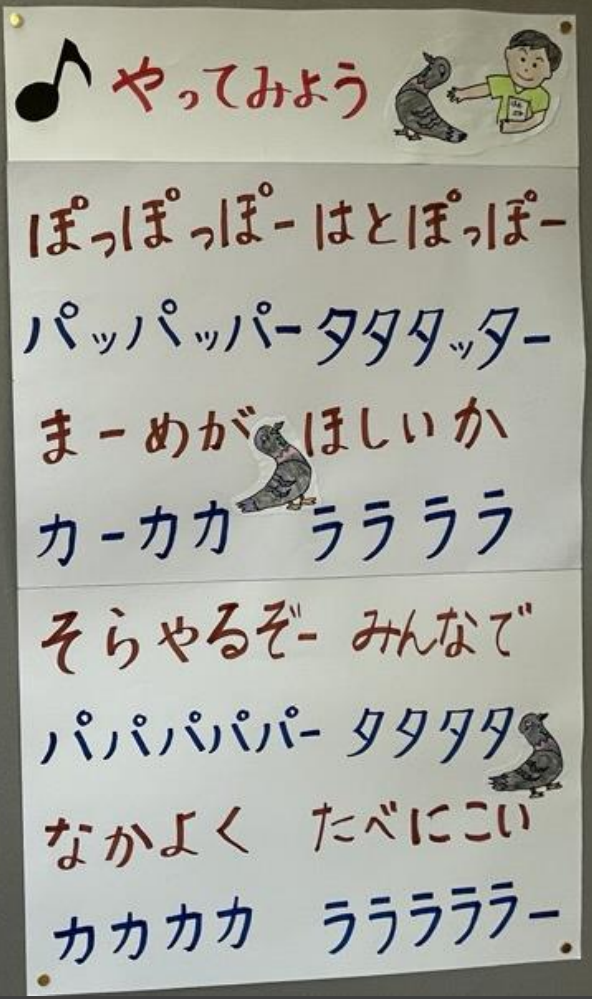 やってみよう
ぽっぽっぽー はとぽっぽー
パッパッパー タタタッター
まーめが ほしいか
カーカカ ララララ
そらやるぞー みんなで
パパパパパー タタタタ
なかよく たべにこい
カカカカ ラララララー